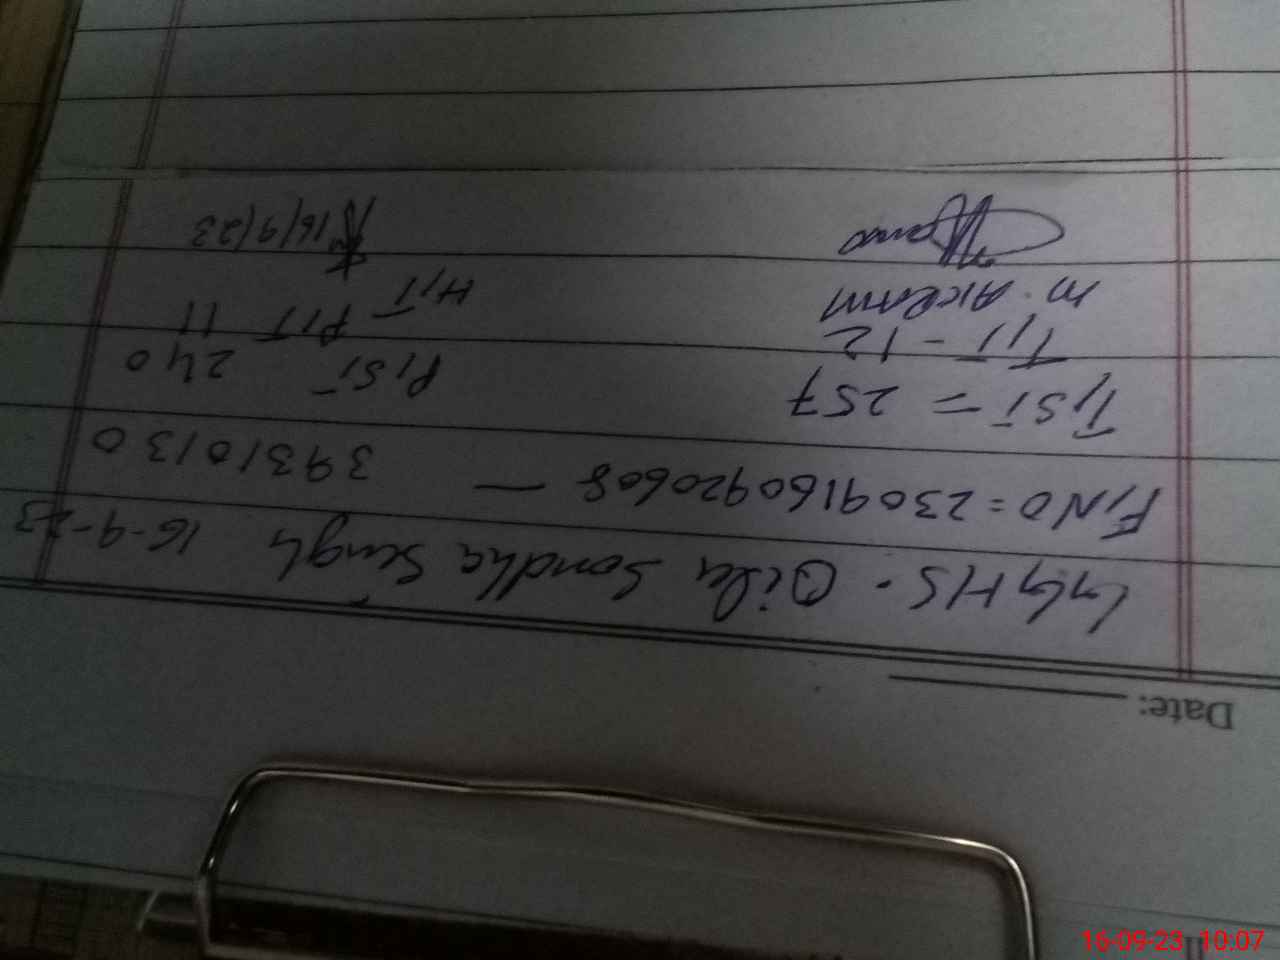 Date:
GGHS. Qila Sondha Singh 16-9-23
F,NO = 2309160920608 — 39310130
T,ST = 257 P,ST 240
T,T - 12 P,T 11
M. AKRAM H,T
16/9/23
16-09-23 10:07